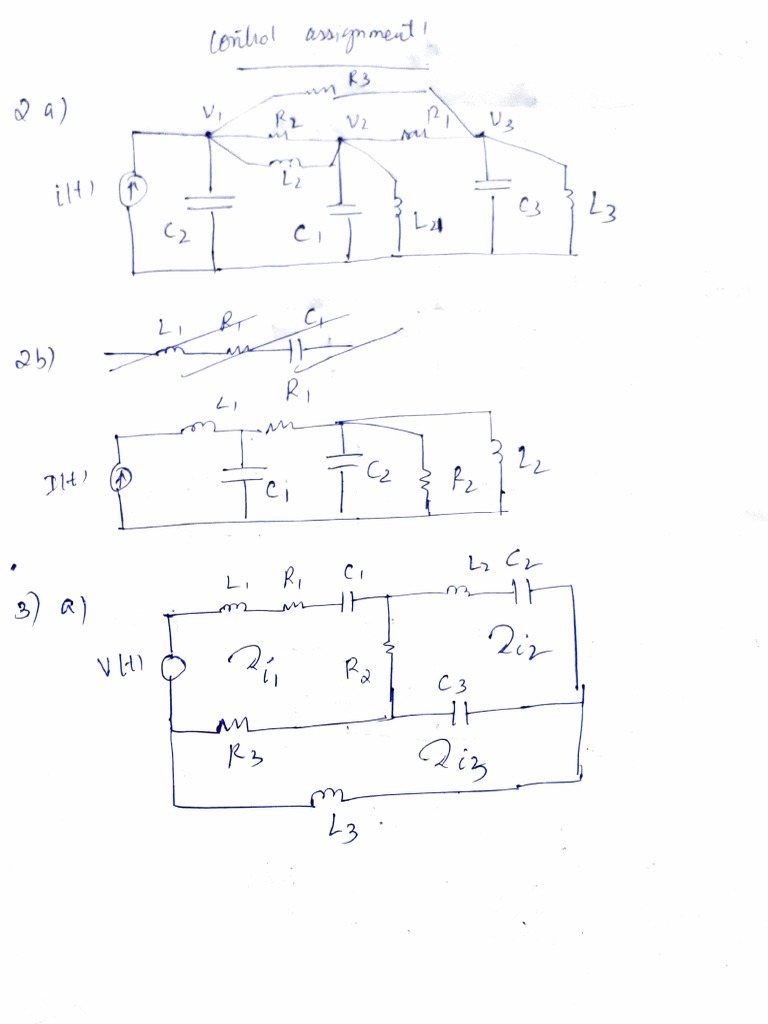 Control assignment 1
2 a)
R3
V1 R2 V2 R1 V3
L2
i(t)
C2 C1 L1 C3 L3
2b)
L1 R1 C1
L1 R1
I(t) C1 C2 R2 L2
3) a)
L1 R1 C1 L2 C2
V(t) i1 R2 i2
C3
R3 i3
L3